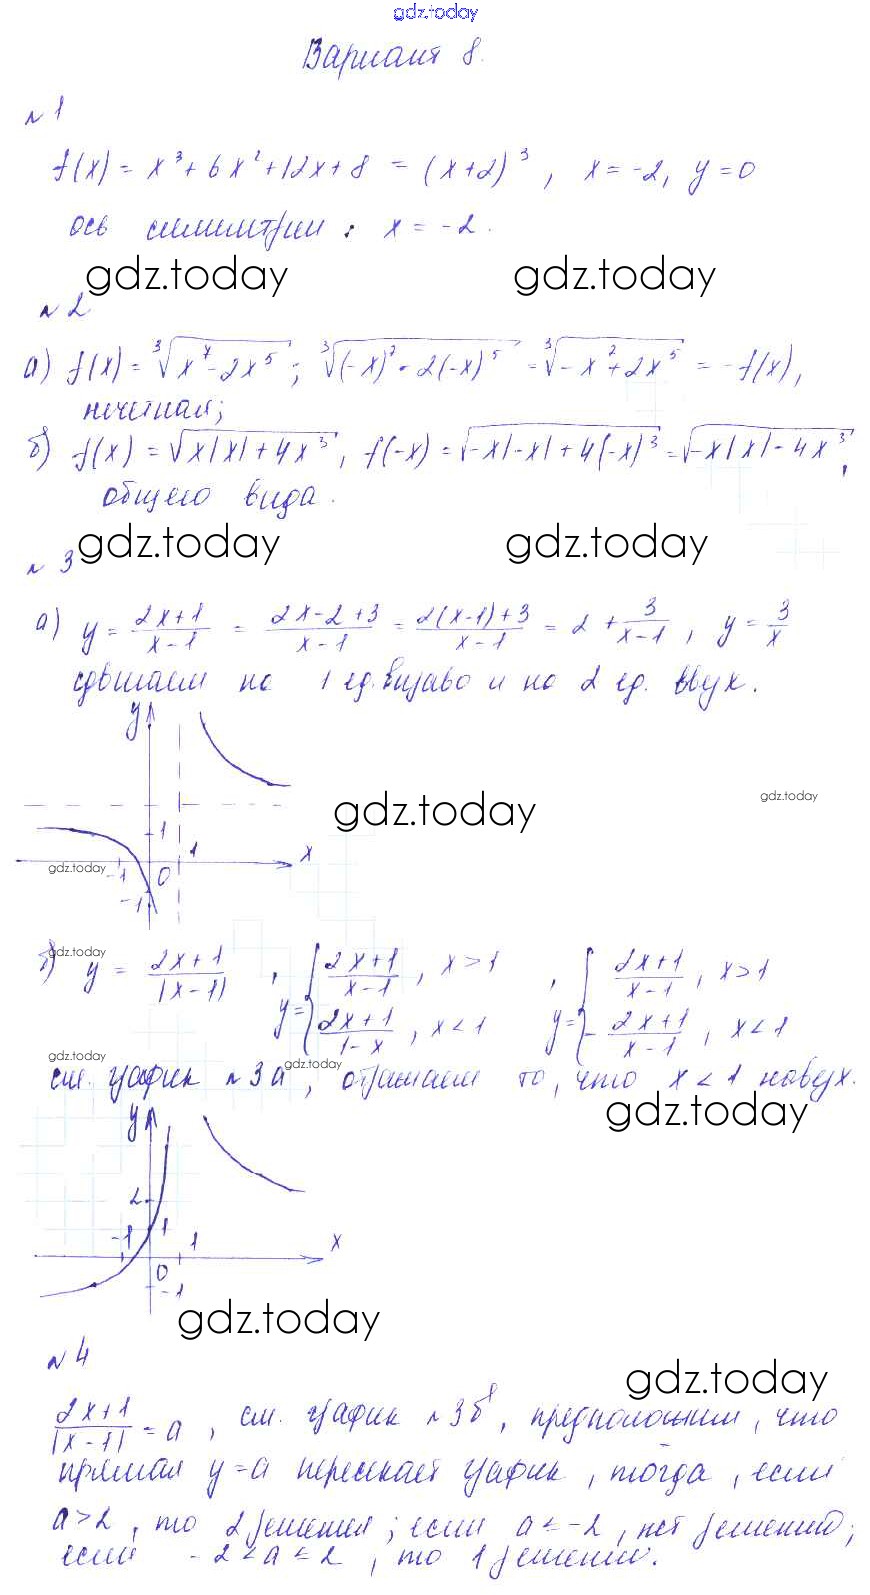 gdz.today
Вариант 8.
№1
f(x) = x³ + 6x² + 12x + 8 = (x+2)³, x = -2, y = 0
ось симметрии: x = -2.
gdz.today gdz.today
№2
а) f(x) = ∛(x⁷ - 2x⁵); ∛((-x)⁷ - 2(-x)⁵) = ∛(-x⁷ + 2x⁵) = -f(x),
нечетная;
б) f(x) = √(x|x| + 4x³), f(-x) = √(-x|-x| + 4(-x)³) = √(-x|x| - 4x³),
общего вида.
gdz.today gdz.today
№3
а) y = (2x+1)/(x-1) = (2x-2+3)/(x-1) = (2(x-1)+3)/(x-1) = 2 + 3/(x-1), y = 3/x
сдвигаем на 1 ед. вправо и на 2 ед. вверх.
y
gdz.today
gdz.today
1
1 x
gdz.today -1 0
-1
gdz.today
б) y = (2x+1)/|x-1|, y = { (2x+1)/(x-1), x > 1 , y = { (2x+1)/(x-1), x > 1
(2x+1)/(1-x), x < 1 - (2x+1)/(x-1), x < 1
gdz.today gdz.today
см. график №3а, отражаем то, что x < 1 наверх.
gdz.today
y
2
-1 1 1 x
0
-1
gdz.today
№4
gdz.today
(2x+1)/|x-1| = a, см. график №3б, предположим, что
прямая y = a пересекает график, тогда, если
a > 2, то 2 решения; если a ≤ -2, нет решений;
если -2 < a ≤ 2, то 1 решение.